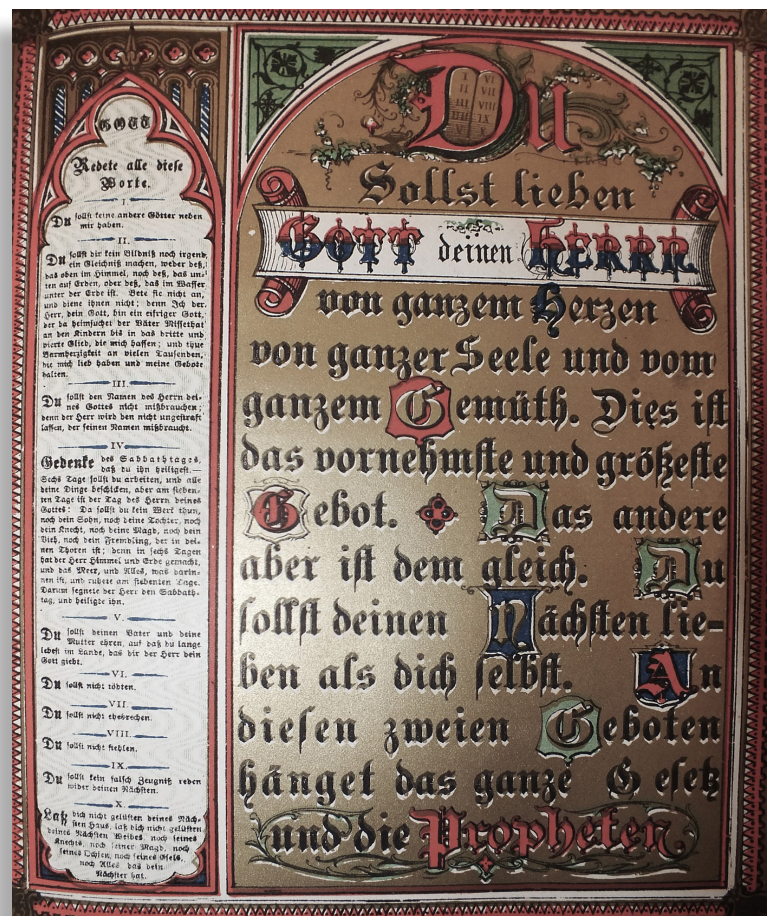 GOTT
Redete alle diese
Worte.
I.
Du sollst keine andere Götter neben
mir haben.
II.
Du sollst dir kein Bildniß noch irgend
ein Gleichniß machen, weder deß,
das oben im Himmel, noch deß, das un-
ten auf Erden, oder deß, das im Wasser
unter der Erde ist. Bete sie nicht an,
und diene ihnen nicht; denn Ich der
Herr, dein Gott, bin ein eifriger Gott,
der da heimsuchet der Väter Missethat
an den Kindern bis in das dritte und
vierte Glied, die mich hassen; und thue
Barmherzigkeit an vielen Tausenden,
die mich lieb haben und meine Gebote
halten.
III.
Du sollst den Namen des Herrn dei-
nes Gottes nicht mißbrauchen;
denn der Herr wird den nicht ungestraft
lassen, der seinen Namen mißbraucht.
IV
Gedenke des Sabbathtages,
daß du ihn heiligest.—
Sechs Tage sollst du arbeiten, und alle
deine Dinge beschicken, aber am sieben-
ten Tage ist der Tag des Herrn deines
Gottes: Da sollst du kein Werk thun,
noch dein Sohn, noch deine Tochter, noch
dein Knecht, noch deine Magd, noch dein
Vieh, noch dein Fremdling, der in dei-
nen Thoren ist; denn in sechs Tagen
hat der Herr Himmel und Erde gemacht,
und das Meer, und Alles, was darin-
nen ist, und ruhete am siebenten Tage.
Darum segnete der Herr den Sabbath-
tag, und heiligte ihn.
V.
Du sollst deinen Vater und deine
Mutter ehren, auf daß du lange
lebest im Lande, das dir der Herr dein
Gott giebt.
VI.
Du sollst nicht tödten.
VII.
Du sollst nicht ehebrechen.
VIII.
Du sollst nicht stehlen.
IX.
Du sollst kein falsch Zeugniß reden
wider deinen Nächsten.
X.
Laß dich nicht gelüsten deines Näch-
sten Haus, laß dich nicht gelüsten
deines Nächsten Weibes, noch seines
Knechts, noch seiner Magd, noch
seines Ochsen, noch seines Esels,
noch Alles das dein
Nächster hat.
Du
I VI
II VII
III VIII
IIII IX
V X
Sollst lieben
GOTT deinen HERRN
von ganzem Herzen
von ganzer Seele und vom
ganzem Gemüth. Dies ist
das vornehmste und größeste
Gebot. Das andere
aber ist dem gleich. Du
sollst deinen Nächsten lie-
ben als dich selbst. An
diesen zweien Geboten
hänget das ganze Gesetz
und die Propheten.